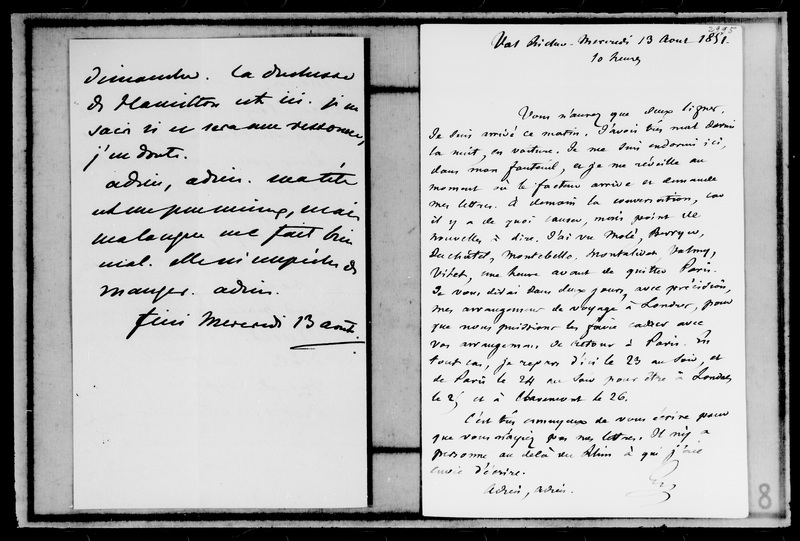 Dimanche. La duchesse
de Hamilton est ici. je ne
sais si ce sera une ressource,
j'en doute.
adieu, adieu. ma tête
est un peu mieux, mais
ma langue me fait bien
mal. Elle m'empêche de
manger. adieu.
fini Mercredi 13 août.
Val Richer. Mercredi 13 Aout 1851.
10 heures
Vous n'aurez que deux lignes.
Je suis arrivé ce matin. J'avois très mal dormi
la nuit, en voiture. Je me suis endormi ici,
dans mon fauteuil, et je me réveille au
moment où le facteur arrive et demande
mes lettres. à demain la conversation, car
il y a de quoi causer, mais point de
nouvelles à dire. J'ai vu Molé, Berryer,
Duchâtel, Montebello, Montalivet, Valmy,
Vitet, une heure avant de quitter Paris.
Je vous dirai dans deux jours, avec précision,
mes arrangemens de voyage à Londres, pour
que nous puissions les faire cadrer avec
vos arrangemens de retour à Paris. En
tout cas, je repars d'ici le 23 au soir, et
de Paris le 24 au soir pour être à Londres
le 25 et à Claremont le 26.
C'est très ennuyeux de vous écrire pour
que vous n'ayiez pas mes lettres. Il n'y a
personne au delà du Rhin à qui j'aie
envie d'écrire.
Adieu, adieu.
8